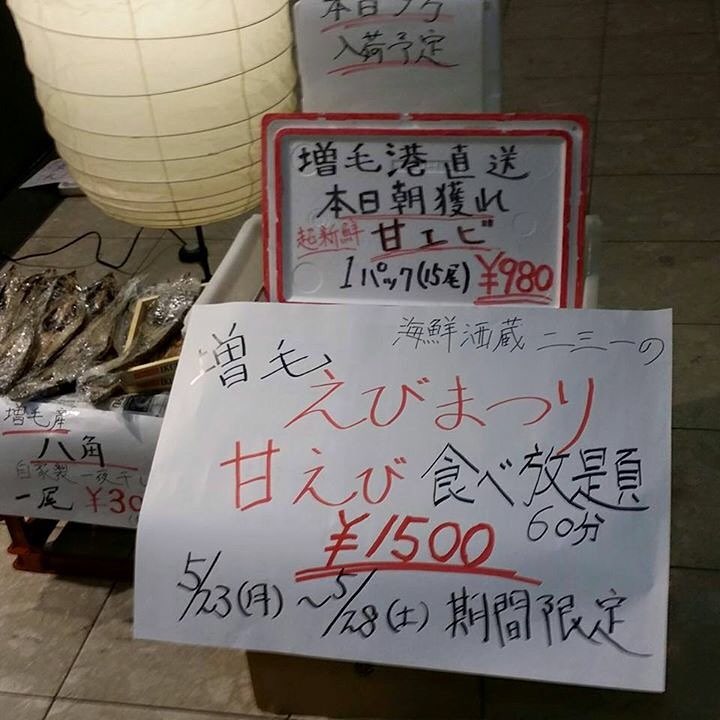 本日
入荷予定
増毛港直送
本日朝獲れ
超新鮮 甘エビ
1パック(15尾) ¥980
海鮮酒蔵 二三一の
増毛 えびまつり
甘えび 食べ放題
60分
¥1500
5/23(月)〜5/28(土) 期間限定
増毛産
八角
自家製 一夜干し
一尾 ¥30